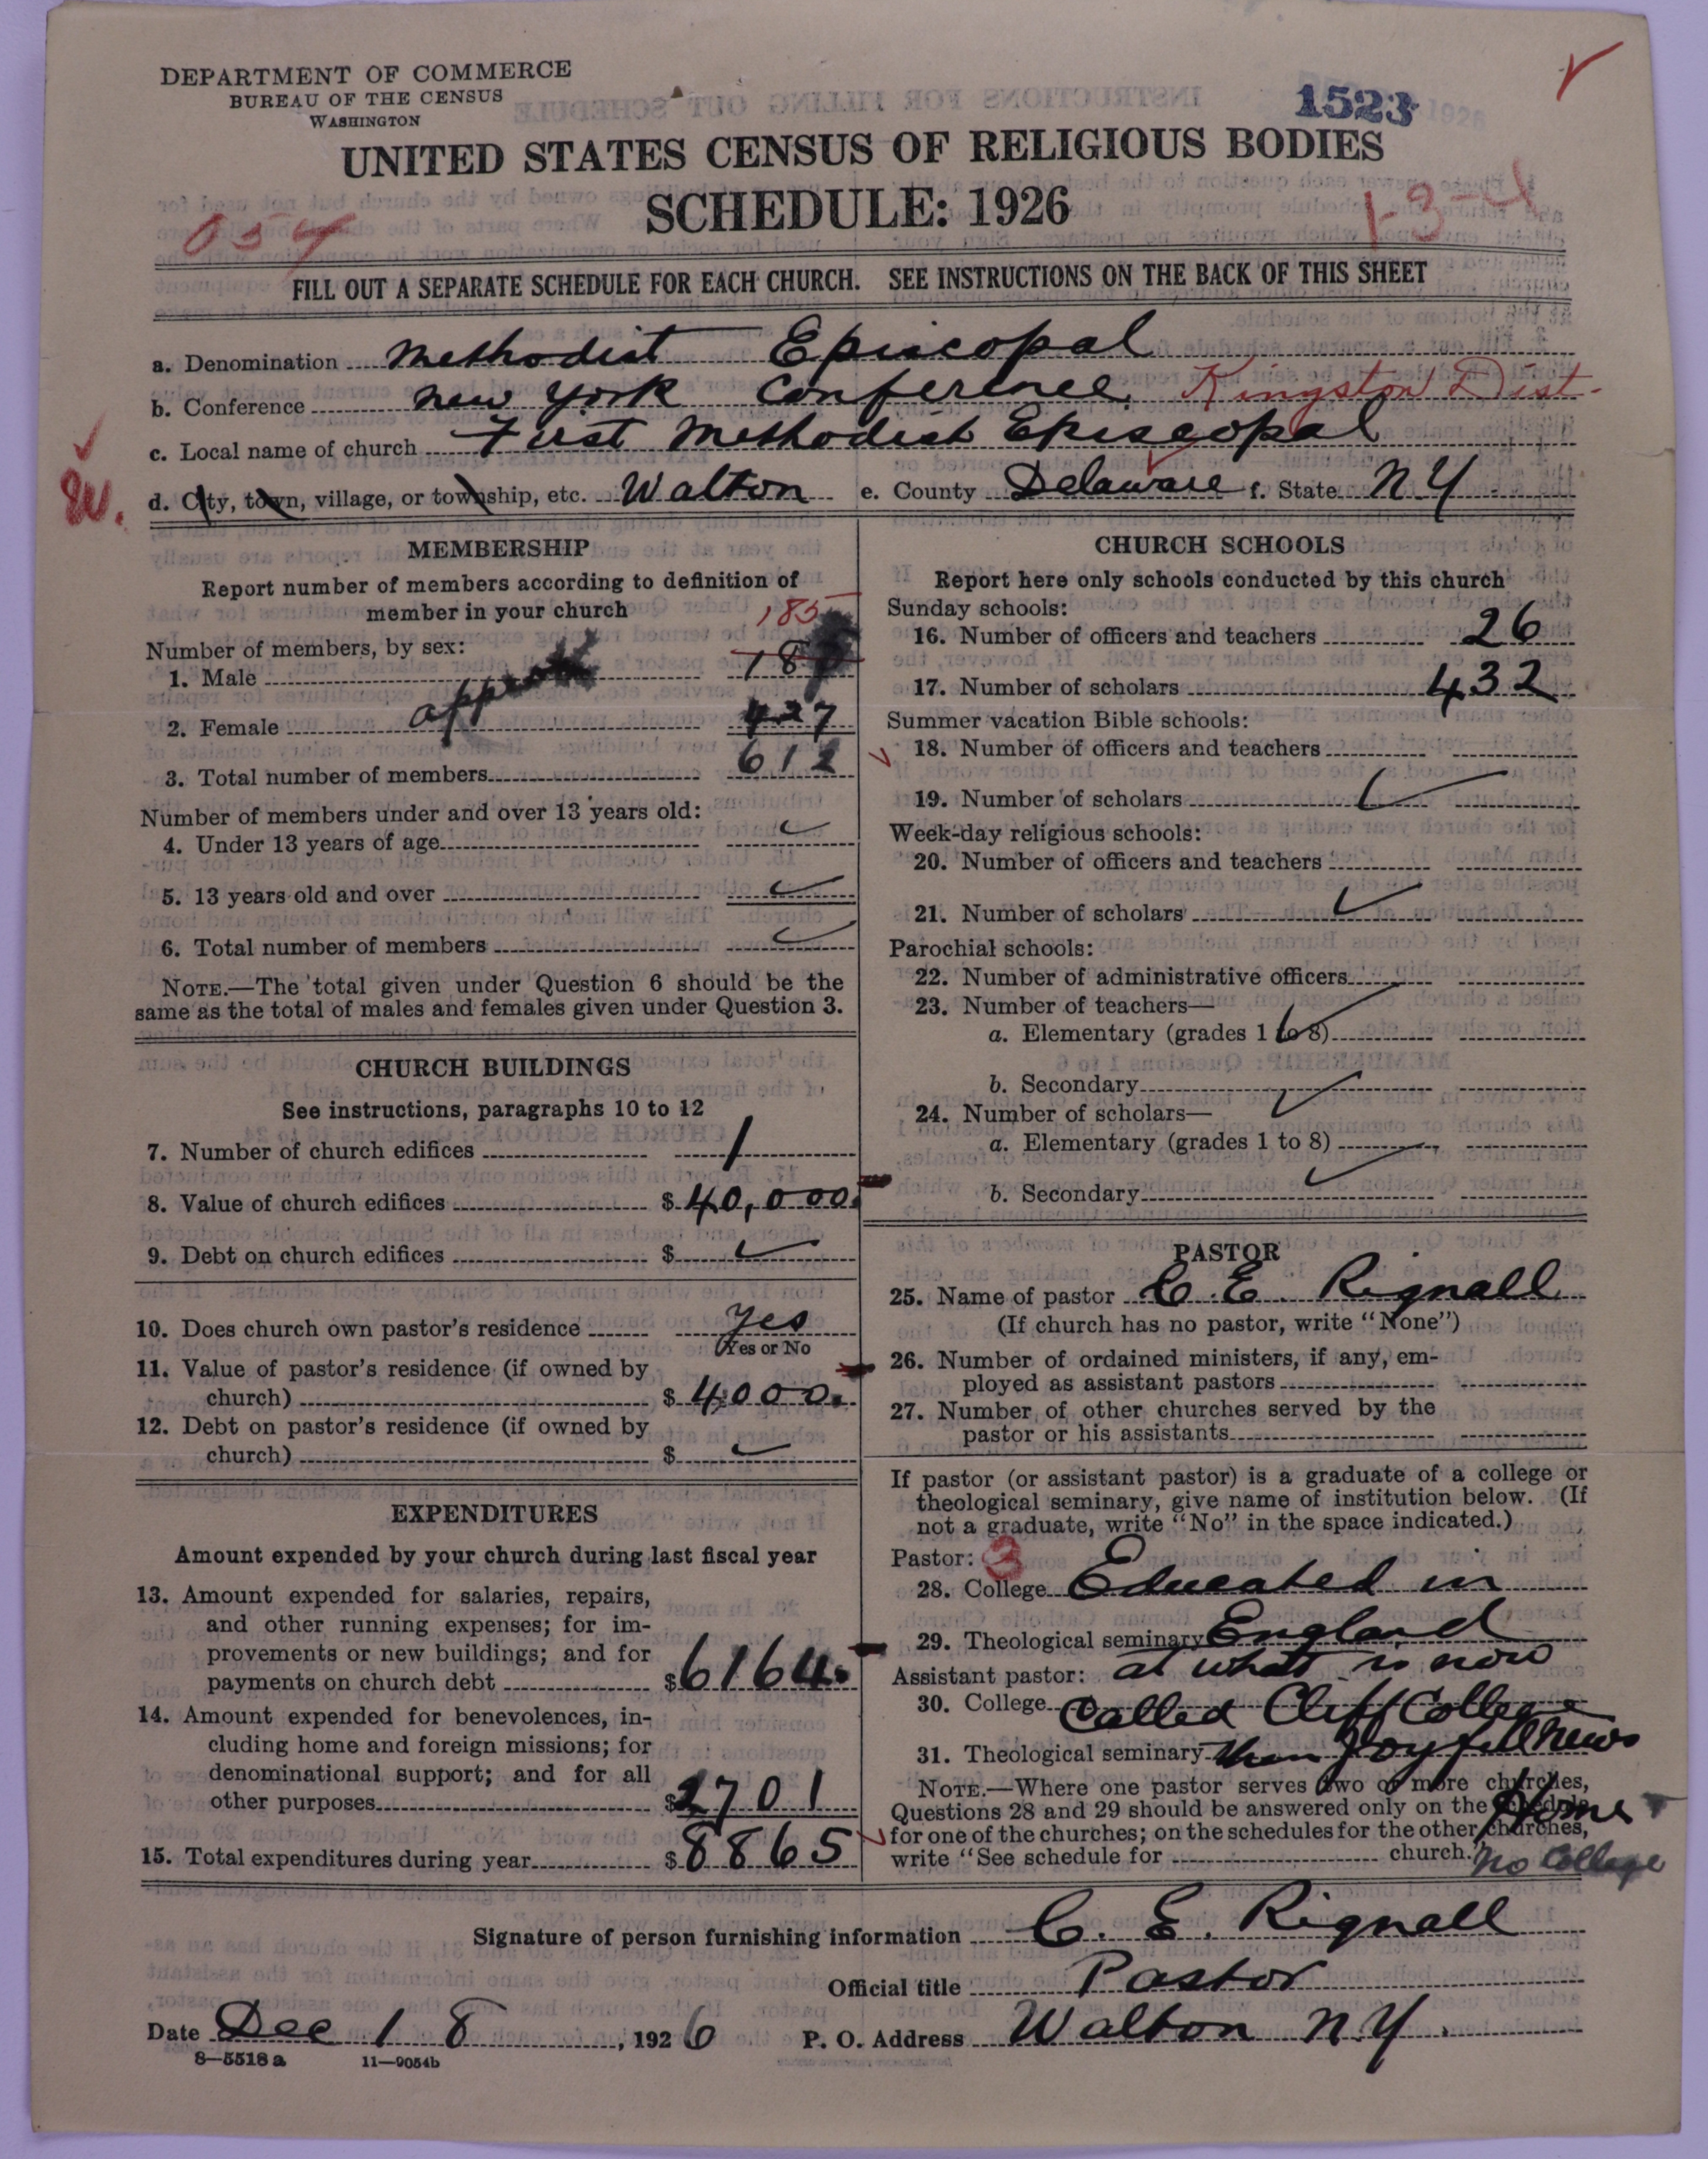 DEPARTMENT OF COMMERCE
BUREAU OF THE CENSUS
WASHINGTON
1523
UNITED STATES CENSUS OF RELIGIOUS BODIES
SCHEDULE: 1926
054
1-3-4
FILL OUT A SEPARATE SCHEDULE FOR EACH CHURCH. SEE INSTRUCTIONS ON THE BACK OF THIS SHEET
a. Denomination Methodist Episcopal
b. Conference New York Conference Kingston Dist.
c. Local name of church First Methodist Episcopal
d. City, town, village, or township, etc. Walton e. County Delaware f. State N Y
MEMBERSHIP
Report number of members according to definition of
member in your church
185
Number of members, by sex:
1. Male 18
approx
2. Female 427
3. Total number of members 612
Number of members under and over 13 years old:
4. Under 13 years of age
5. 13 years old and over
6. Total number of members
NOTE.—The total given under Question 6 should be the
same as the total of males and females given under Question 3.
CHURCH BUILDINGS
See instructions, paragraphs 10 to 12
7. Number of church edifices 1
8. Value of church edifices $ 40,000.
9. Debt on church edifices $
10. Does church own pastor's residence Yes
Yes or No
11. Value of pastor's residence (if owned by
church) $ 4000.
12. Debt on pastor's residence (if owned by
church) $
EXPENDITURES
Amount expended by your church during last fiscal year
13. Amount expended for salaries, repairs,
and other running expenses; for im-
provements or new buildings; and for
payments on church debt $ 6164.
14. Amount expended for benevolences, in-
cluding home and foreign missions; for
denominational support; and for all
other purposes $ 2701
15. Total expenditures during year $ 8865
CHURCH SCHOOLS
Report here only schools conducted by this church
Sunday schools:
16. Number of officers and teachers 26
17. Number of scholars 432
Summer vacation Bible schools:
18. Number of officers and teachers
19. Number of scholars
Week-day religious schools:
20. Number of officers and teachers
21. Number of scholars
Parochial schools:
22. Number of administrative officers
23. Number of teachers—
a. Elementary (grades 1 to 8)
b. Secondary
24. Number of scholars—
a. Elementary (grades 1 to 8)
b. Secondary
PASTOR
25. Name of pastor C. E. Rignall
(If church has no pastor, write "None")
26. Number of ordained ministers, if any, em-
ployed as assistant pastors
27. Number of other churches served by the
pastor or his assistants
If pastor (or assistant pastor) is a graduate of a college or
theological seminary, give name of institution below. (If
not a graduate, write "No" in the space indicated.)
Pastor: 3
28. College Educated in
29. Theological seminary England
Assistant pastor: at what is now
30. College Called Cliff College
31. Theological seminary then Joyfull News
NOTE.—Where one pastor serves two or more churches,
Questions 28 and 29 should be answered only on the schedule Home
for one of the churches; on the schedules for the other churches,
write "See schedule for church." No College
Signature of person furnishing information C. E. Rignall
Official title Pastor
Date Dec 18, 1926 P. O. Address Walton N.Y.
8—5518 a 11—9054b